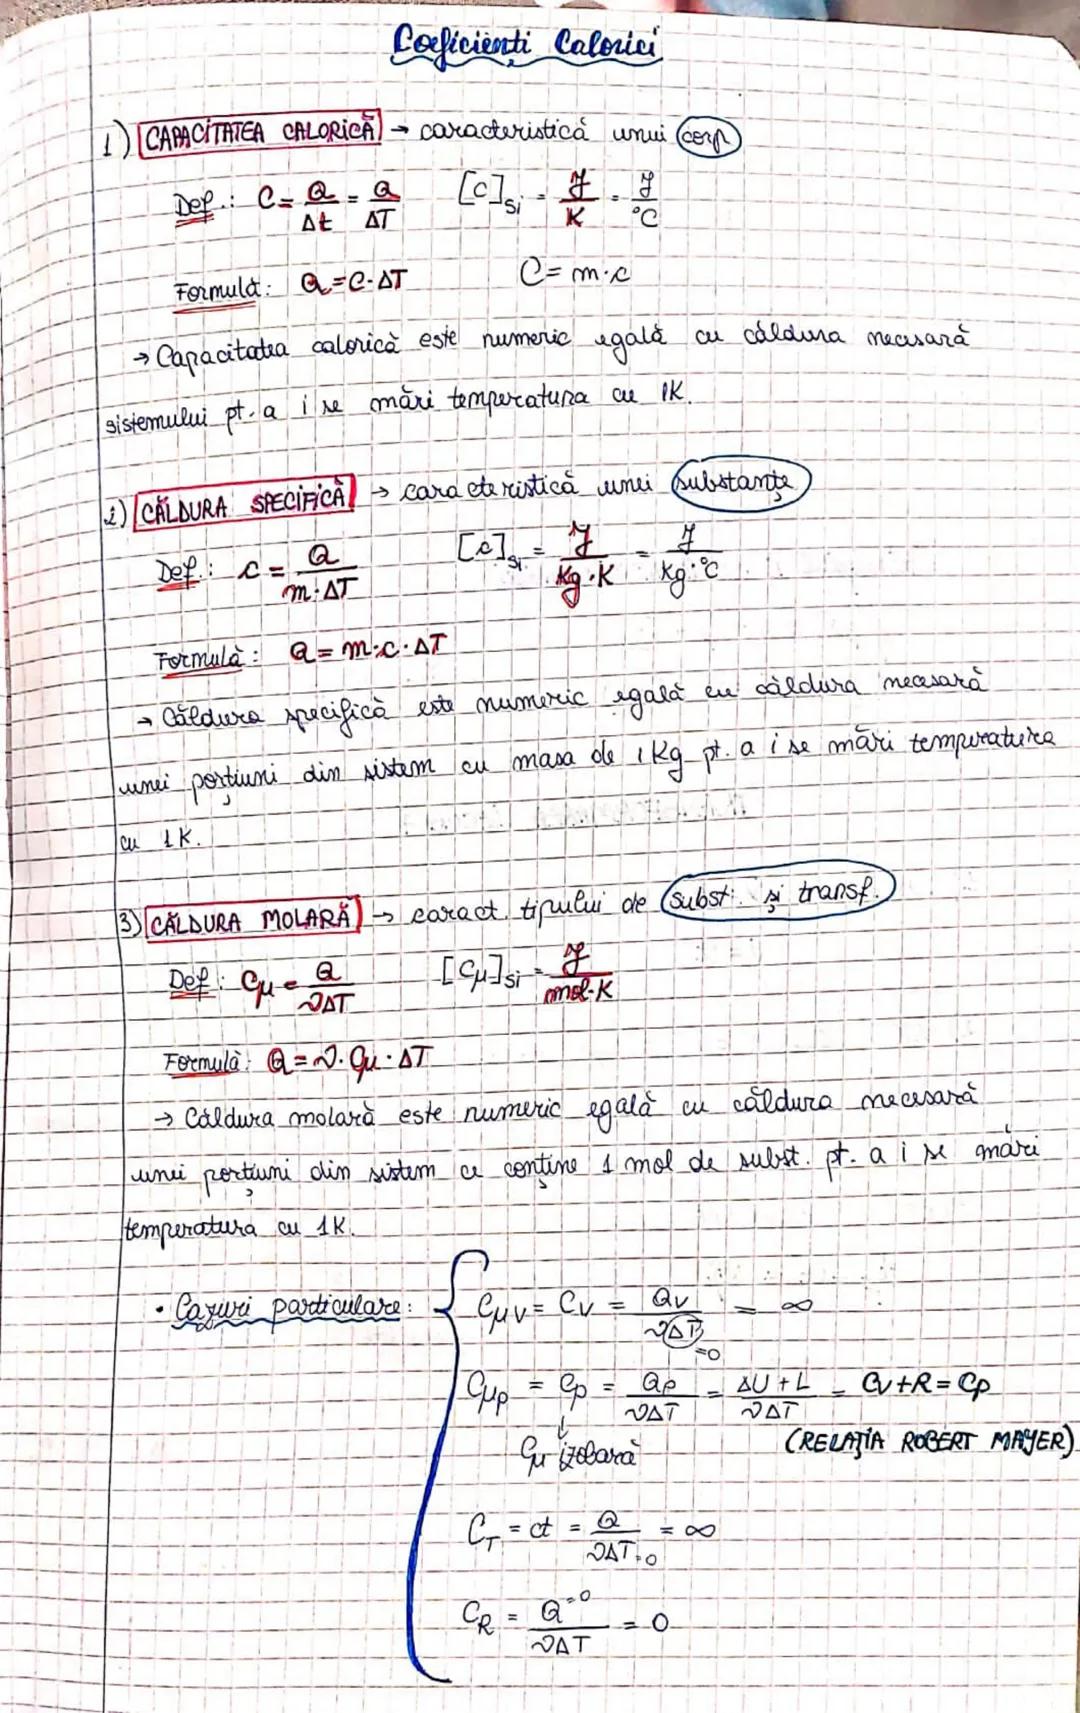 Coeficienti Calorici
1) CAPACITATEA CALORICĂ → caracteristică unui corp
Def.: C = Q/Δt = Q/ΔT [C]SI = J/K = J/°C
Formulă: Q = C·ΔT C = m·c
→ Capacitatea calorică este numeric egală cu căldura necesară
sistemului pt. a i se mări temperatura cu 1K.
2) CĂLDURA SPECIFICĂ → caracteristică unei substanțe
Def.: c = Q/m·ΔT [c]SI = J/Kg·K = J/Kg·°C
Formulă: Q = m·c·ΔT
→ Căldura specifică este numeric egală cu căldura necesară
unei porțiuni din sistem cu masa de 1 Kg pt. a i se mări temperatura
cu 1K.
3) CĂLDURA MOLARĂ → caract. tipului de subst. și transf.
Def: Cμ = Q/νΔT [Cμ]SI = J/mol·K
Formulă: Q = ν·Cμ·ΔT
→ Căldura molară este numeric egală cu căldura necesară
unei porțiuni din sistem ce conține 1 mol de subst. pt. a i se mări
temperatura cu 1K.
• Cazuri particulare: { CμV = CV = QV/νΔT=0 = ∞
Cμp = Cp = Qp/νΔT = ΔU+L/νΔT = CV+R = Cp
↓
Cμ izobară (RELAȚIA ROBERT MAYER)
CT = ct = Q/νΔT=0 = ∞
CR = Q=0/νΔT = 0